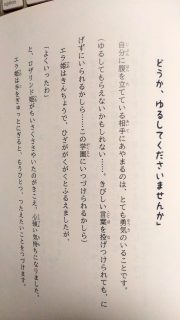 どうか、ゆるしてくださいませんか」
自分に腹を立てている相手にあやまるのは、とても勇気のいることです。
(ゆるしてもらえないかもしれない……、きびしい言葉を投げつけられても、に
げずにいられるかしら……この学園にいつづけられるかしら)
エラ姫はきんちょうで、ひざががくがくとふるえましたが、
「よくいったわ」
と、ロザリンド姫がちいさくささやいたのがきこえ、心強い気持ちになりました。
エラ姫は手をぎゅっとにぎると、もうひとつ、つたえたいことをつづけます。